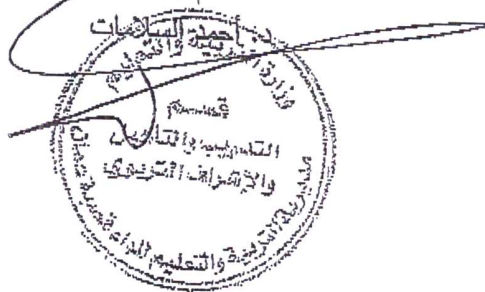 د. أحمد السلامات
وزارة التربية والتعليم
قسم
التدريب والتأهيل
والإشراف التربوي
مديرية التربية والتعليم للواء قصبة